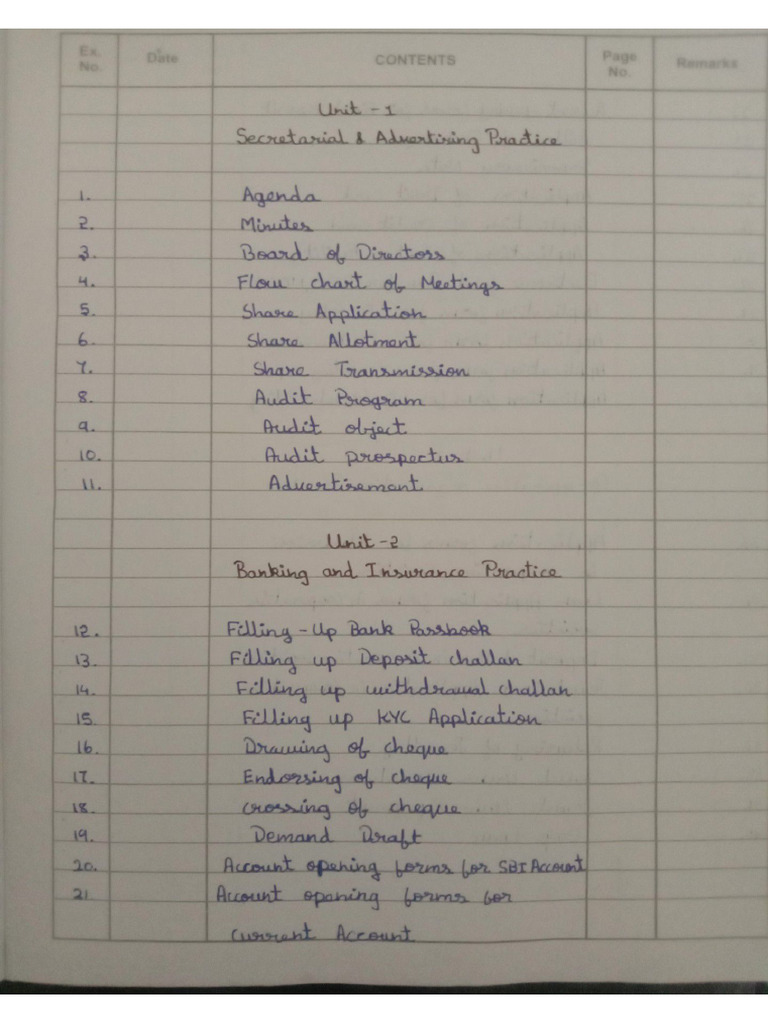 Ex. No. Date CONTENTS Page No. Remarks
Unit - 1
Secretarial & Advertising Practice
1. Agenda
2. Minutes
3. Board of Directors
4. Flow chart of Meetings
5. Share Application
6. Share Allotment
7. Share Transmission
8. Audit Program
9. Audit object
10. Audit prospectus
11. Advertisement
Unit - 2
Banking and Insurance Practice
12. Filling - Up Bank Passbook
13. Filling up Deposit challan
14. Filling up withdrawal challan
15. Filling up KYC Application
16. Drawing of cheque
17. Endorsing of cheque
18. crossing of cheque
19. Demand Draft
20. Account opening forms for SBI Account
21. Account opening forms for
current Account